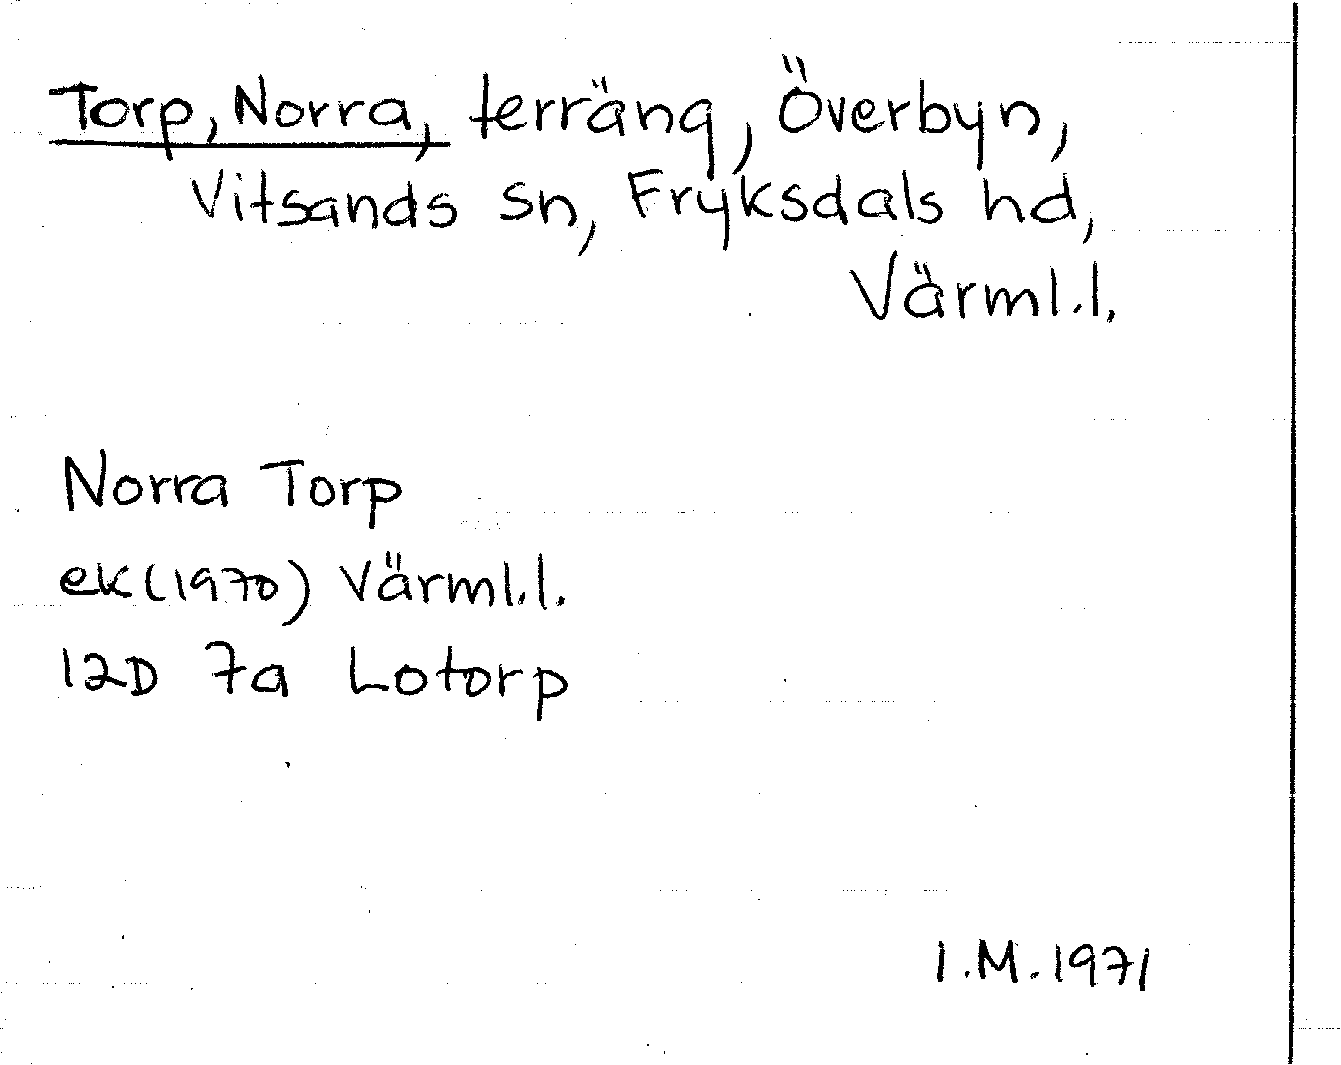 Torp, Norra, terräng, Överbyn,
Vitsands sn, Fryksdals hd,
Värml.l.
Norra Torp
ek(1970) Värml.l.
12D 7a Lotorp
I.M.1971